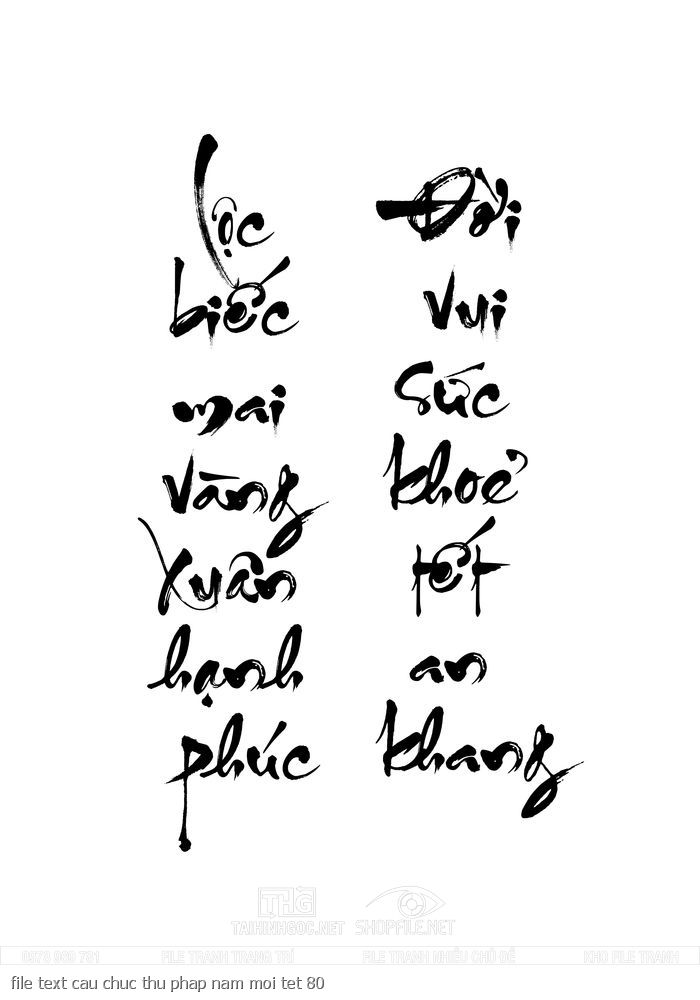 Lộc
biếc
mai
vàng
Xuân
hạnh
phúc
Đời
vui
sức
khoẻ
tết
an
khang
THG
TAIHINHGOC.NET
SHOPFILE.NET
0973 989 781
FILE TRANH TRANG TRÍ
FILE TRANH NHIỀU CHỦ ĐỀ
KHO FILE TRANH
file text cau chuc thu phap nam moi tet 80